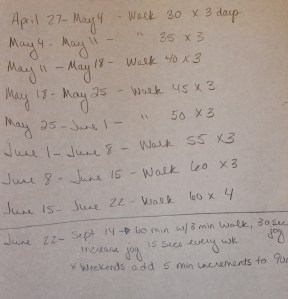 April 27 - May 4 - Walk 30 x 3 days
May 4 - May 11 - " 35 x 3
May 11 - May 18 - Walk 40 x 3
May 18 - May 25 - Walk 45 x 3
May 25 - June 1 - " 50 x 3
June 1 - June 8 - Walk 55 x 3
June 8 - June 15 - Walk 60 x 3
June 15 - June 22 - Walk 60 x 4
June 22 - Sept 14 → 60 min w/ 3 min walk, 30 sec jog
increase jog 15 secs every wk
* Weekends add 5 min increments to 90